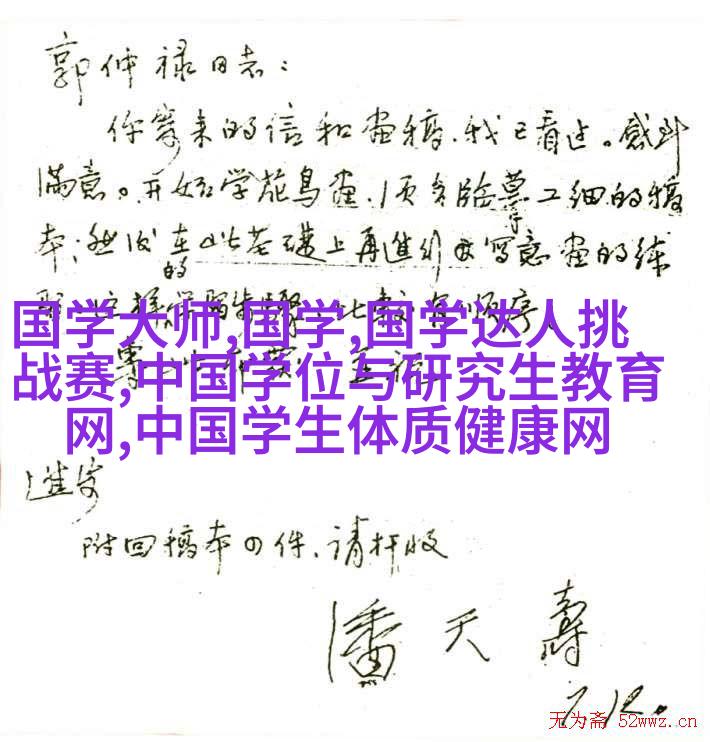 郭仲禄同志：
你寄来的信和画稿，我已看过。感到
满意。开始学花鸟画，须多临摹工细的稿
本；然后在此基础上再进行写意画的练
的
国学大师,国学,国学达人挑
战赛,中国学位与研究生教育
网,中国学生体质健康网
进安
附回稿本四件、请检收
潘天寿
7.12.
无为斋 52wwz.cn